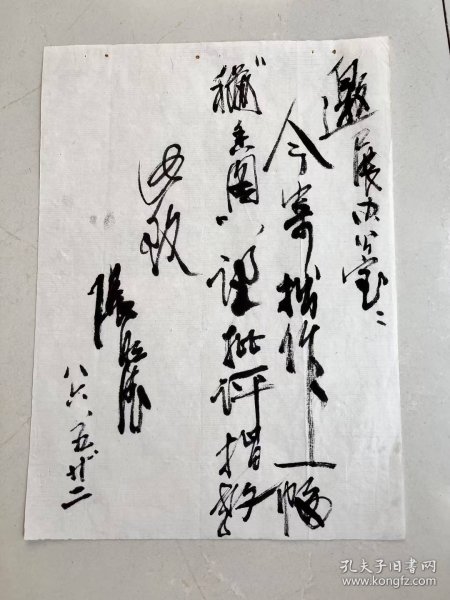 邀展办公室:
今寄拙作一幅
"香图",望批评指教
此致
张
八六.五.廿二
孔夫子旧书网
www.kongfz.com